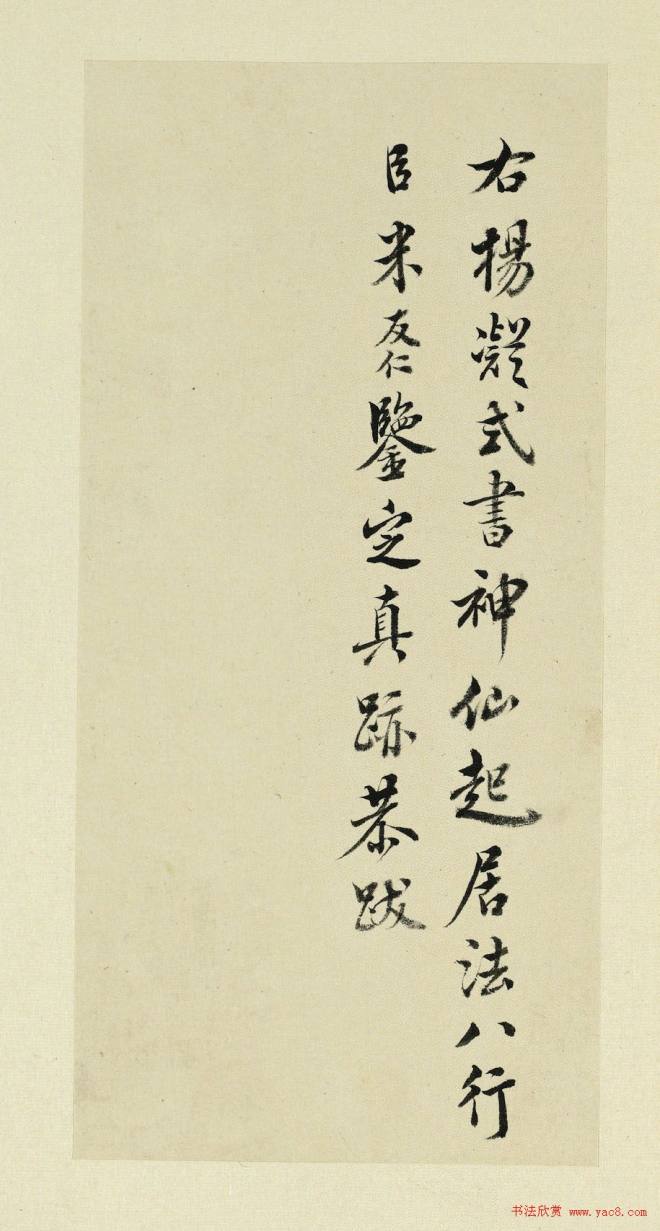 右楊凝式書神仙起居法八行
臣米友仁鑒定真跡恭跋
书法欣赏 www.yac8.com